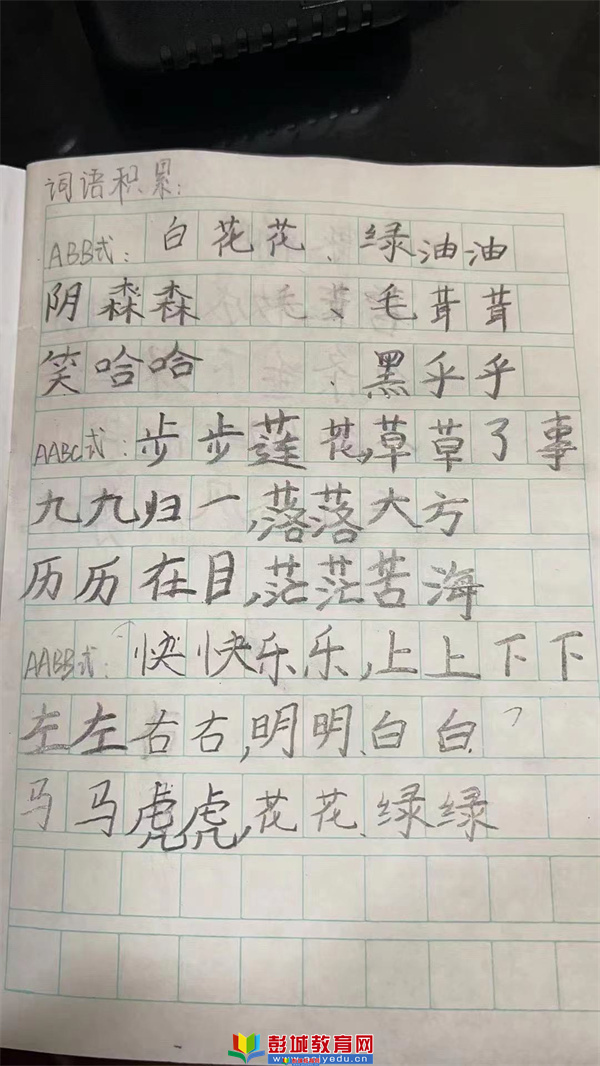 词语积累:
ABB式: 白花花、绿油油
阴森森、毛茸茸
笑哈哈、黑乎乎
AABC式: 步步莲花,草草了事
九九归一,落落大方
历历在目,茫茫苦海
AABB式: 快快乐乐,上上下下
左左右右,明明白白、
马马虎虎,花花绿绿
彭城教育网